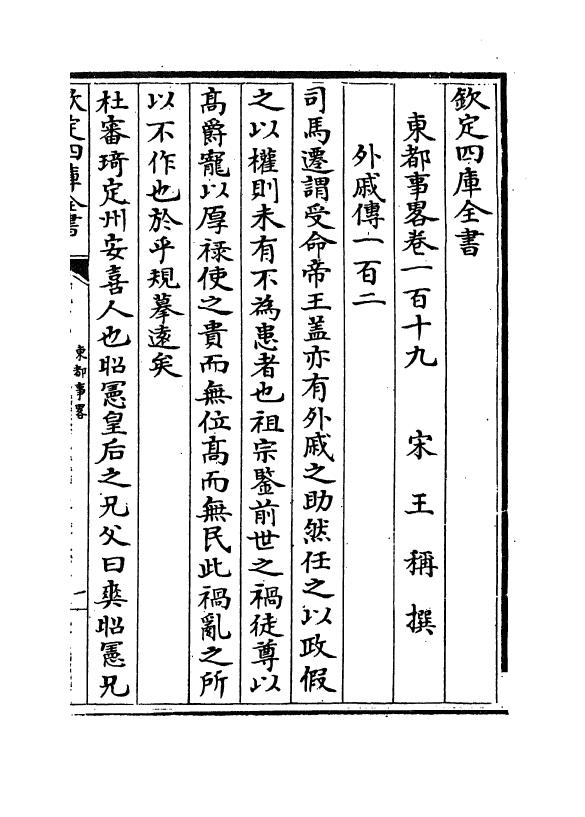 欽定四庫全書
東都事畧卷一百十九　宋　王　稱　撰
外戚傳一百二
司馬遷謂受命帝王盖亦有外戚之助然任之以政假
之以權則未有不為患者也祖宗鑒前世之禍徒尊以
髙爵寵以厚禄使之貴而無位髙而無民此禍亂之所
以不作也於乎規摹逺矣
杜審琦定州安喜人也昭憲皇后之兄父曰爽昭憲兄
欽定四庫全書
東都事畧
一